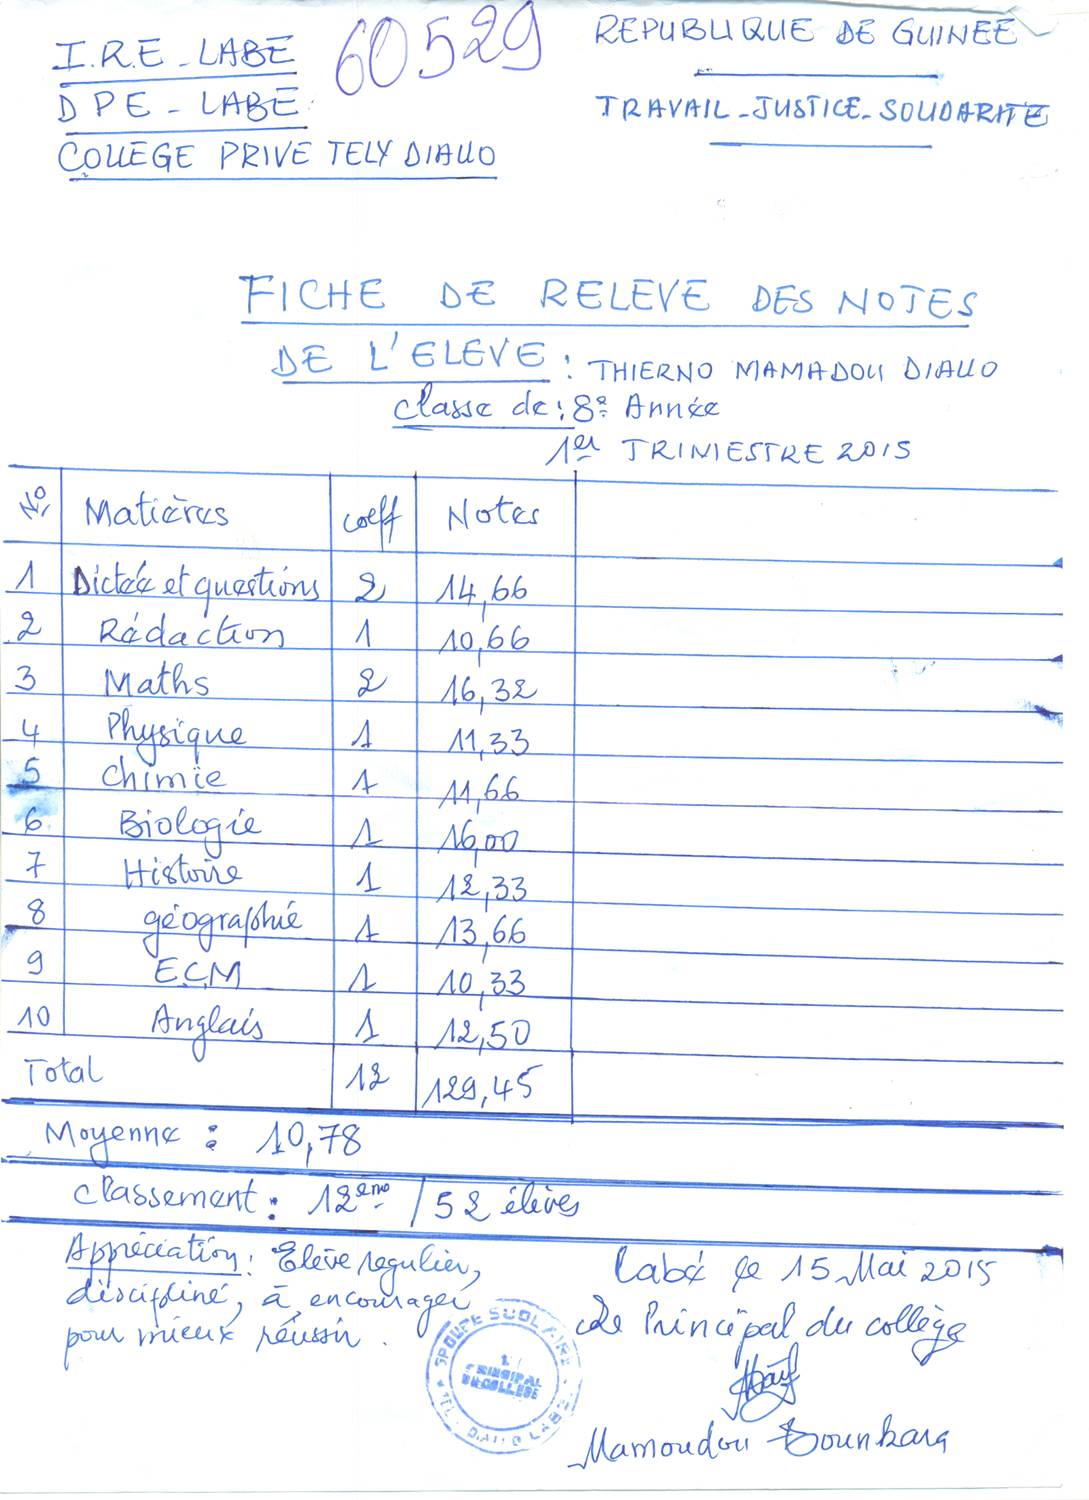 I.R.E - LABE
60529
REPUBLIQUE DE GUINEE
DPE - LABE
TRAVAIL - JUSTICE - SOLIDARITE
COLLEGE PRIVE TELY DIALLO
FICHE DE RELEVE DES NOTES
DE L'ELEVE : THIERNO MAMADOU DIALLO
Classe de : 8e Année
1er TRIMESTRE 2015
N° Matières coeff Notes
1 Dictée et questions 2 14,66
2 Rédaction 1 10,66
3 Maths 2 16,32
4 Physique 1 11,33
5 Chimie 1 11,66
6 Biologie 1 16,00
7 Histoire 1 12,33
8 géographie 1 13,66
9 E.C.M 1 10,33
10 Anglais 1 12,50
Total 12 129,45
Moyenne : 10,78
Classement : 12eme / 52 élèves
Appréciation : Elève regulier,
discipliné, à encourager
pour mieux réussir.
Labé le 15 Mai 2015
Le Principal du collège
GROUPE SCOLAIRE
PRINCIPAL
DU COLLEGE
TELI DIALLO LABE
Mamoudou Dounkara